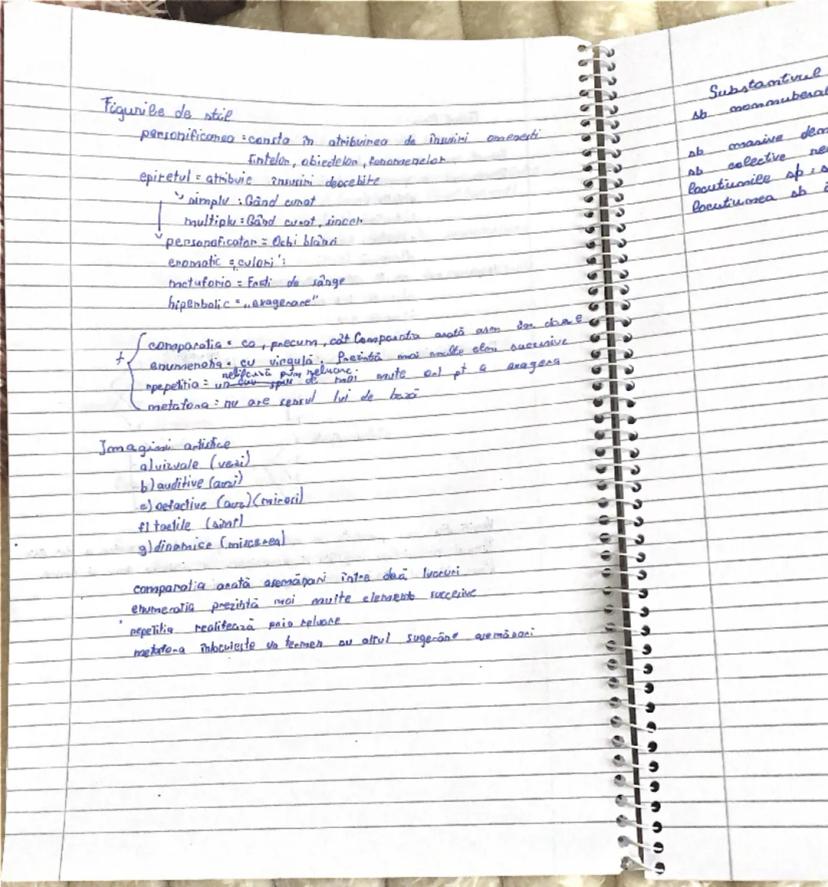 Figurile de stil
personificarea = consta în atribuirea de însuiri omenesti
fintelor, obiectelor, fenomenelor
epitetul = atribuie însuiri deosebite
simplu : Gând curat
multiplu = Gând curat, sincer
personoficator = Ochi blânzi
cromatic = culori
metaforic = de sânge
hiperbolic = „exagerare"
comparatia = ca, precum, cât Comparatia arată asem în
enumeratia = cu virgulă. Prezintă mai multe elem succesive
prin reluare
repetitia = de mai multe ori pt a exagera
metafora = nu are sensul lui de bază
Imagini artistice
a) vizuale (vezi)
b) auditive (auzi)
(mirosi)
f) tactile (simt)
g) dinamice (miscarea)
comparatia arată asemănari între două lucruri
enumeratia prezintă mai multe elemente succesive
repetitia realifează prin reluare
metafora înlocuieste un termen cu altul asemănari
Substantivul
sb
sb masive
sb colective
locutiunile sb
locutiunea sb